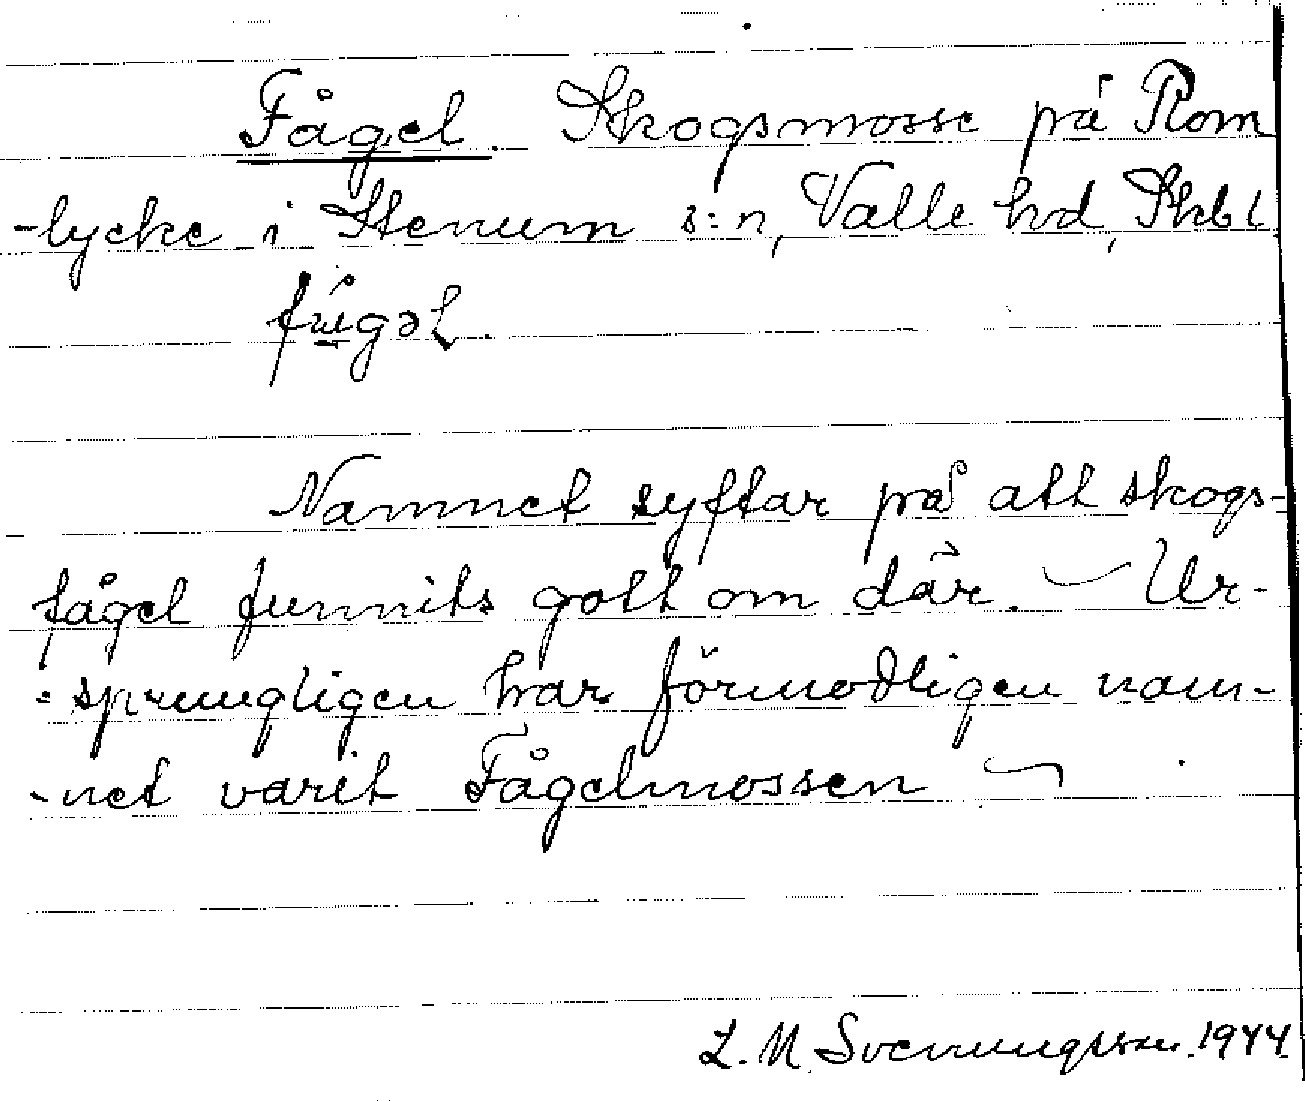 Fågel. Skogsmosse på Rom
-lycke i Stenum s:n, Valle hd, Skbl.
Namnet syftar på att skogs-
fågel funnits gott om där. – Ur-
-sprungligen har förmodligen nam-
-net varit Fågelmossen –
L. M. Svenungsson. 1944.